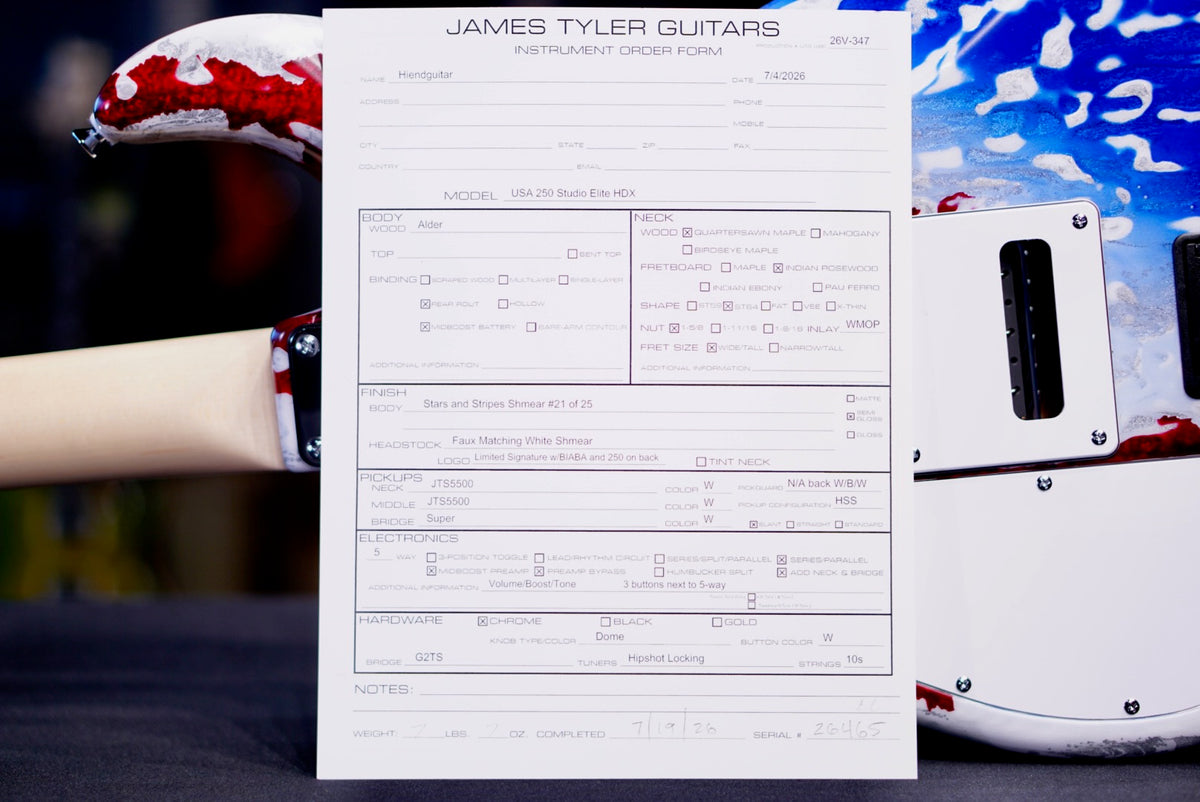 JAMES TYLER GUITARS
INSTRUMENT ORDER FORM 26V-347
NAME Hiendguitar DATE 7/4/2026
ADDRESS PHONE
MOBILE
CITY STATE ZIP FAX
COUNTRY EMAIL
MODEL USA 250 Studio Elite HDX
BODY
WOOD Alder
TOP BENT TOP
BINDING SCRAPED WOOD MULTILAYER SINGLE-LAYER
REAR ROUT HOLLOW
MIDBOOST BATTERY BARE-ARM CONTOUR
ADDITIONAL INFORMATION
NECK
WOOD QUARTERSAWN MAPLE MAHOGANY
BIRDSEYE MAPLE
FRETBOARD MAPLE INDIAN ROSEWOOD
INDIAN EBONY PAU FERRO
SHAPE FAT VEE X-THIN
NUT 1-5/8 1-11/16 INLAY WMOP
FRET SIZE WIDE/TALL NARROW/TALL
ADDITIONAL INFORMATION
FINISH
BODY Stars and Stripes Shmear #21 of 25
MATTE
SEMI GLOSS
GLOSS
HEADSTOCK Faux Matching White Shmear
LOGO Limited Signature w/BIABA and 250 on back TINT NECK
PICKUPS
NECK JTS5500 COLOR W PICKGUARD N/A back W/B/W
MIDDLE JTS5500 COLOR W PICKUP CONFIGURATION HSS
BRIDGE Super COLOR W SLANT STRAIGHT STANDARD
ELECTRONICS
5 WAY 3-POSITION TOGGLE LEAD/RHYTHM CIRCUIT SERIES/SPLIT/PARALLEL SERIES/PARALLEL
MIDBOOST PREAMP PREAMP BYPASS HUMBUCKER SPLIT ADD NECK & BRIDGE
ADDITIONAL INFORMATION Volume/Boost/Tone 3 buttons next to 5-way
HARDWARE CHROME BLACK GOLD
KNOB TYPE/COLOR Dome BUTTON COLOR W
BRIDGE G2TS TUNERS Hipshot Locking STRINGS 10s
NOTES:
WEIGHT: 7 LBS. 7 OZ. COMPLETED 7/19/26 SERIAL # 26465